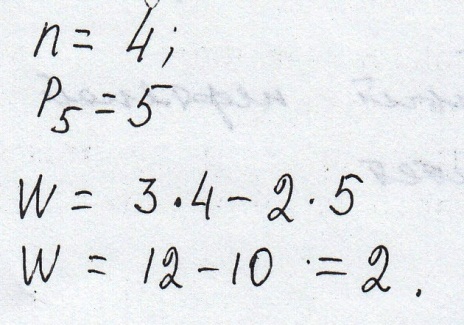 n = 4;
P₅ = 5
W = 3·4 - 2·5
W = 12 - 10 = 2.